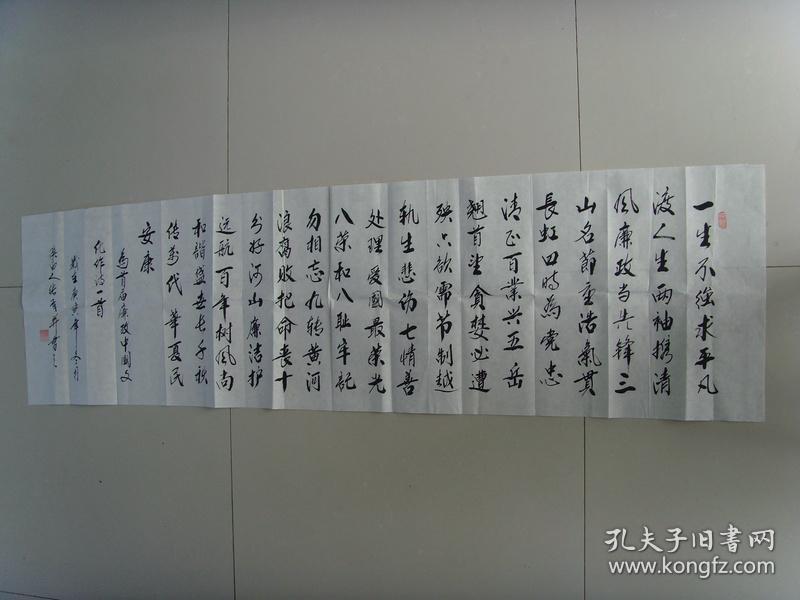 一生不強求平凡
渡人生两袖携清
風廉政当先锋三
山名節重浩氣貫
長虹四時為党忠
清正百業兴五岳
翘首望貪婪必遭
殃六欲需节制越
軌生悲伤七情善
处理爱國最荣光
八荣和八耻牢記
勿相忘九转黄河
浪腐败把命丧十
分好河山廉洁护
远航百年树風尚
和諧盛世长千秋
传万代華夏民
安康
為首届廉政中國文
化作诗一首
孔夫子旧書网
www.kongfz.com